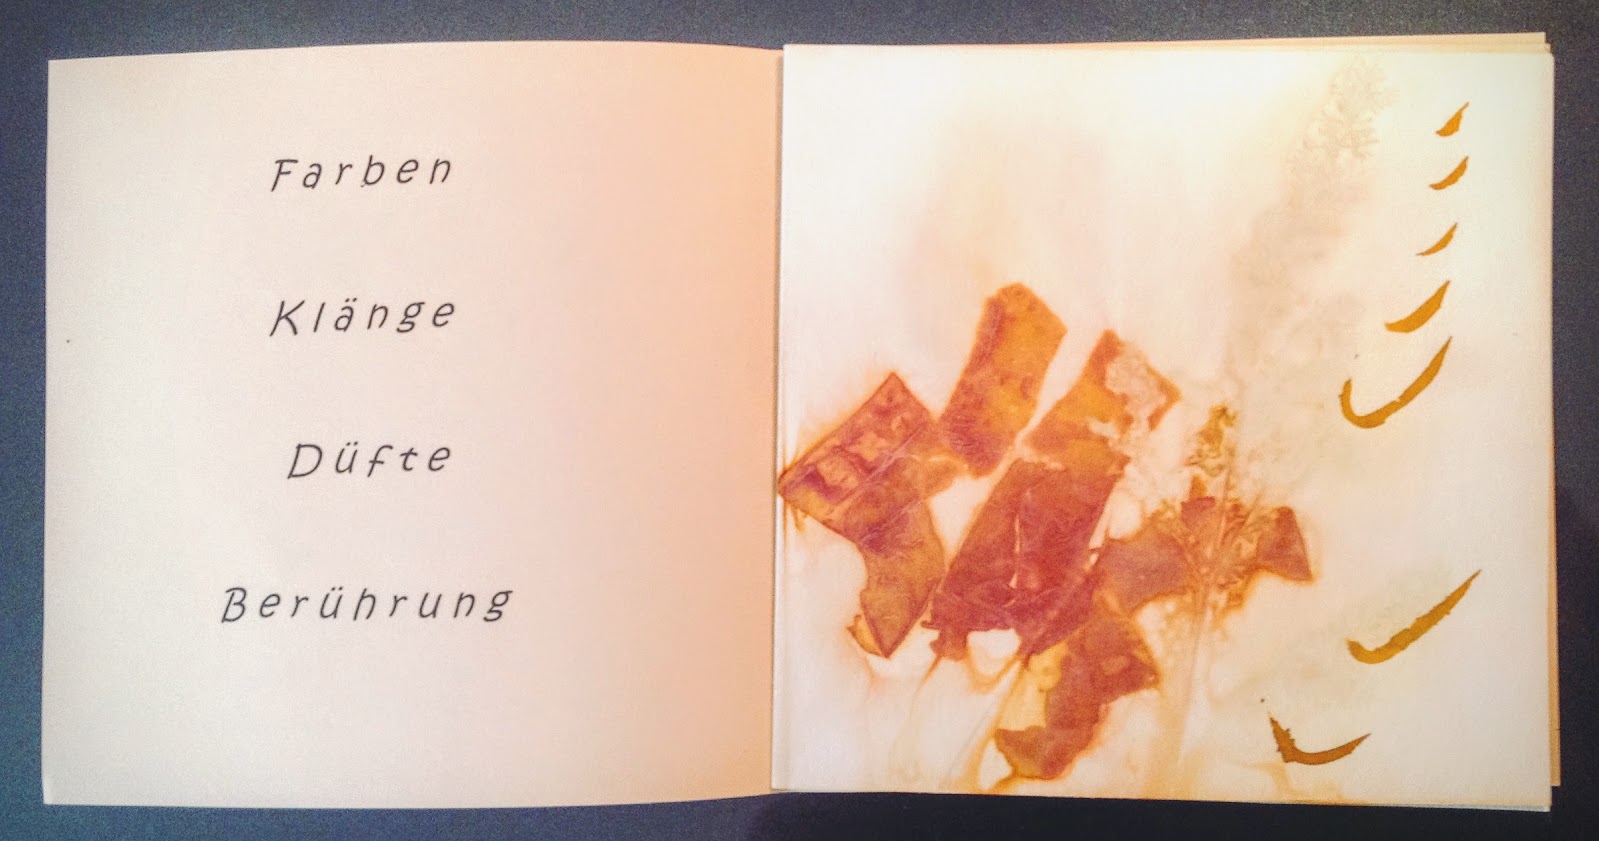 Farben
Klänge
Düfte
Berührung